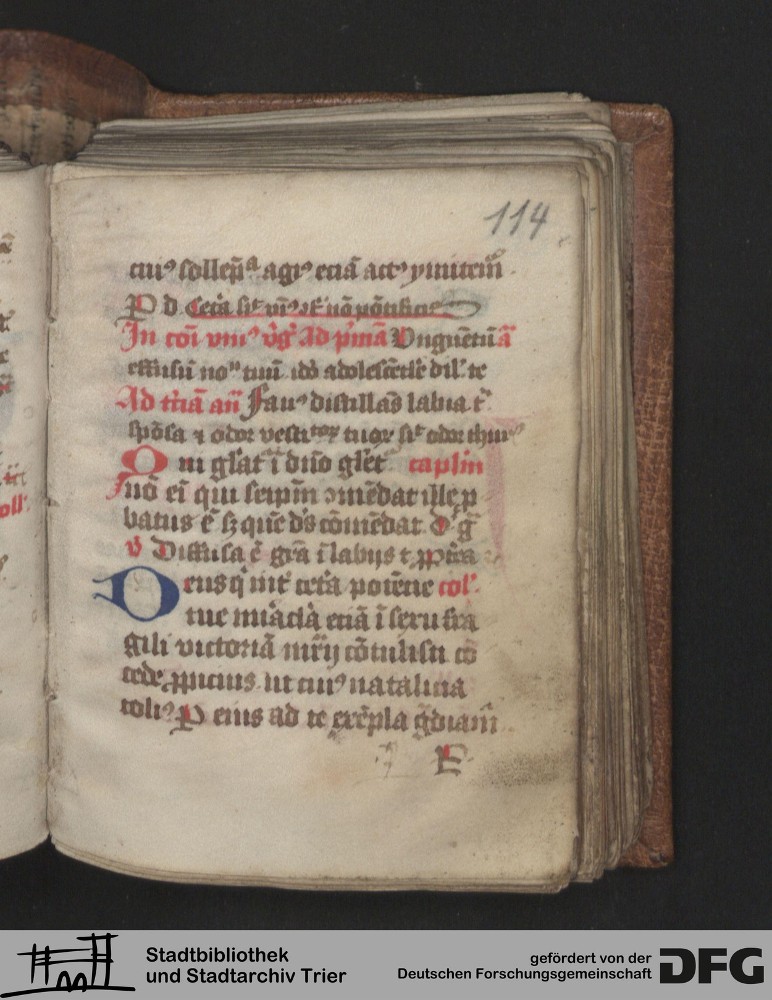 114
cui⁹ sollēp̄ᵃ agi⁹ eciā act⁹ ymitem̄
P d
In cōi vni⁹ v̄ḡ Ad p̄mā Vnguētū ā
effusū no tuū idō adolescētl̄e dil̄ te
Ad t̄ciā an̄ Fau⁹ distillās labia t
spōsa ⁊ odor vestitor tuor sic odor thur
Qui gl̄at ī dn̄o gl̄et caplm̄
nō ei qui seip̄m ɔmēdat ille p
batus ē sꝫ quē d̄s cōmēdat D ḡ
v Diffusa ē gr̄a ī labijs t ꝓpt̄ea
Deus q̄ int̄ cet̄a potētie col̄
tue mirac̄la eciā ī sexu fra
gili victoriā mr̄ij cōtulisti cō
cede ꝓpicius ut cui⁹ natalicia
coli⁹ P eius ad te exēpla g̈diam̄
P
Stadtbibliothek
und Stadtarchiv Trier
gefördert von der
Deutschen Forschungsgemeinschaft
DFG